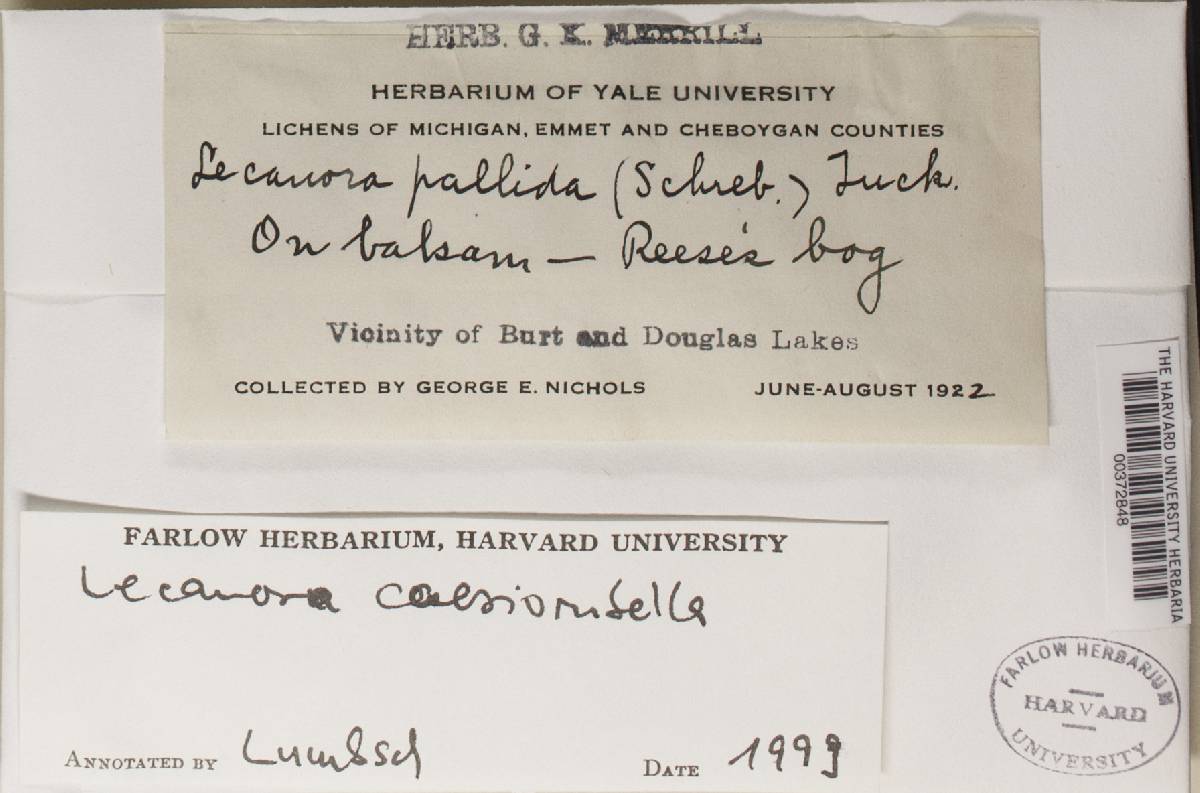 HERB. G. K. MERRILL
HERBARIUM OF YALE UNIVERSITY
LICHENS OF MICHIGAN, EMMET AND CHEBOYGAN COUNTIES
Lecanora pallida (Schreb.) Tuck.
On balsam — Reese's bog
Vicinity of Burt and Douglas Lakes
COLLECTED BY GEORGE E. NICHOLS JUNE-AUGUST 1922
THE HARVARD UNIVERSITY HERBARIA
00372848
FARLOW HERBARIUM, HARVARD UNIVERSITY
Lecanora caesiorubella
ANNOTATED BY Lumbsch DATE 1999
FARLOW HERBARIUM
HARVARD
UNIVERSITY